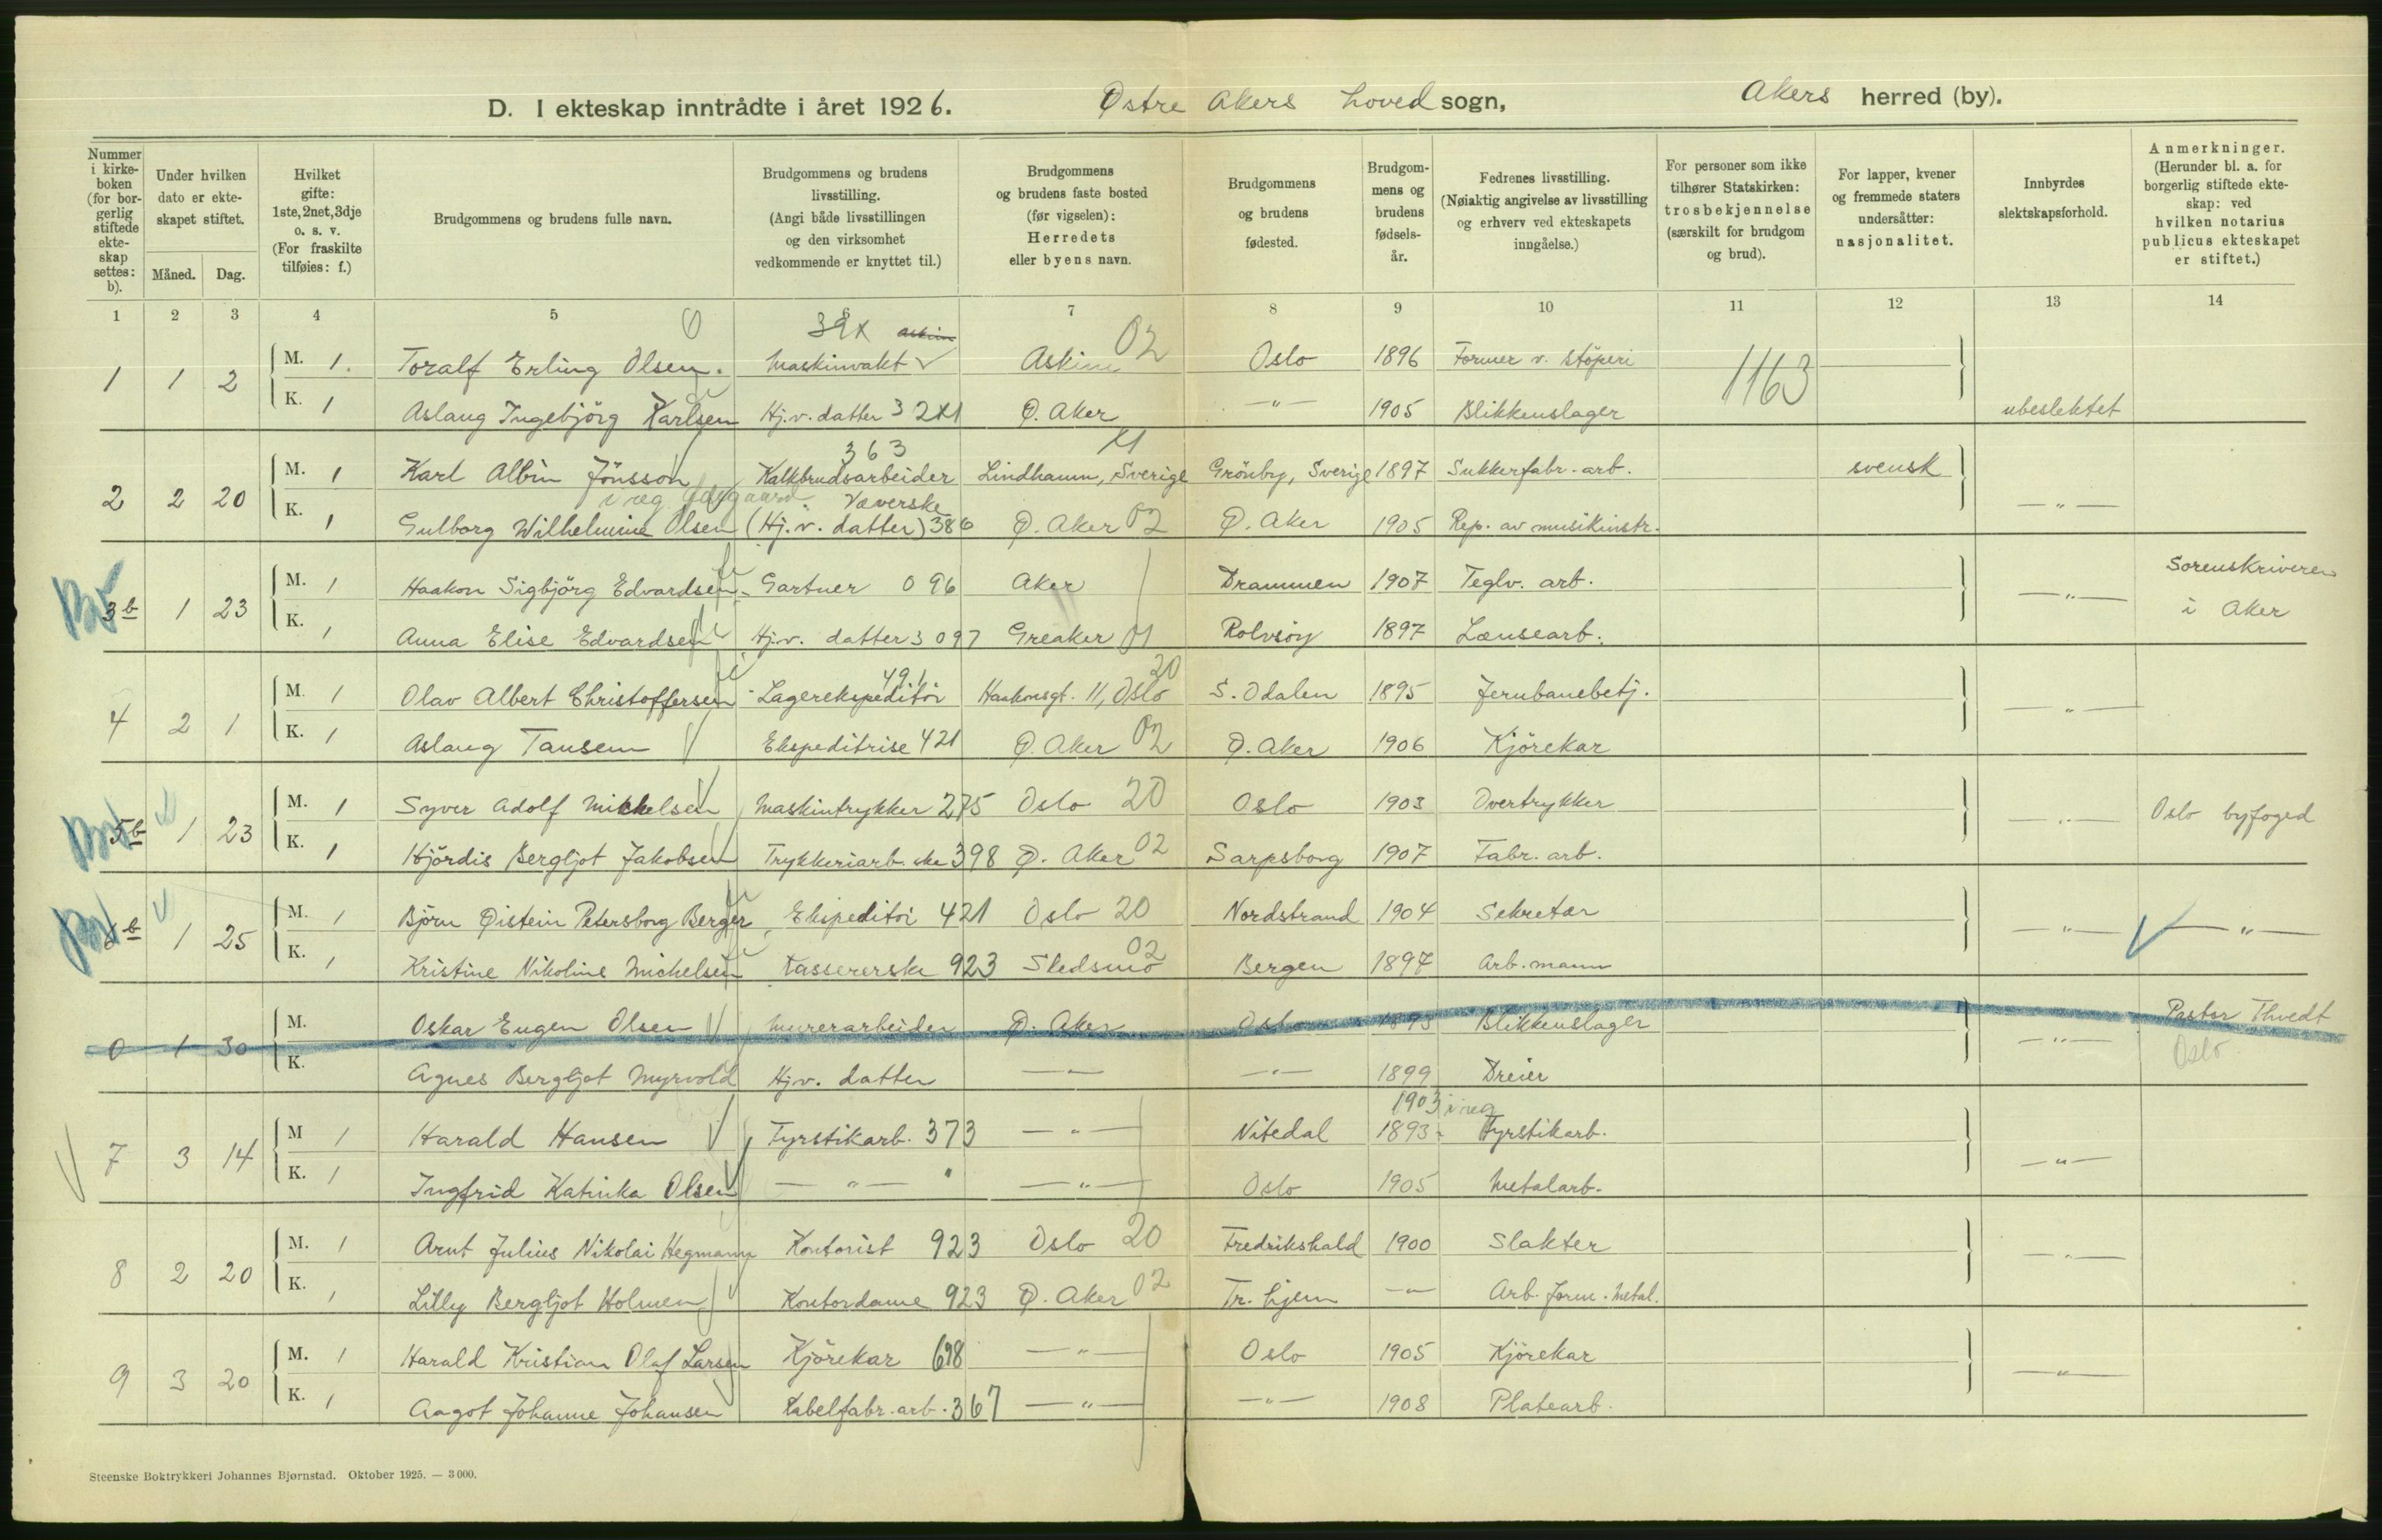 D. I ekteskap inntrådte i året 1926. Østre Akers hoved sogn, Akers herred (by).
Nummer i kirkeboken (for borgerlig stiftede ekteskap settes: b).
Under hvilken dato er ekteskapet stiftet.
Måned. Dag.
Hvilket gifte: 1ste, 2net, 3dje o. s. v. (For fraskilte tilføies: f.)
Brudgommens og brudens fulle navn.
Brudgommens og brudens livsstilling. (Angi både livsstillingen og den virksomhet vedkommende er knyttet til.)
Brudgommens og brudens faste bosted (før vigselen): Herredets eller byens navn.
Brudgommens og brudens fødested.
Brudgommens og brudens fødselsår.
Fedrenes livsstilling. (Nøiaktig angivelse av livsstilling og erhverv ved ekteskapets inngåelse.)
For personer som ikke tilhører Statskirken: trosbekjennelse (særskilt for brudgom og brud).
For lapper, kvener og fremmede staters undersåtter: nasjonalitet.
Innbyrdes slektskapsforhold.
Anmerkninger. (Herunder bl. a. for borgerlig stiftede ekteskap: ved hvilken notarius publicus ekteskapet er stiftet.)
1 2 3 4 5 6 7 8 9 10 11 12 13 14
39x 02
1 1 2 M. 1. Toralf Erling Olsen. Maskinvakt Askim Oslo 1896 Former v. støperi 1163
K. 1 Aslaug Ingebjörg Karlsen Hj.v. datter 3 2x1 Ø. Aker —"— 1905 Blikkenslager ubeslektet
363 x1
2 2 20 M. 1 Karl Albin Jönsson Kalkbrudsarbeider Lindhamn, Sverige Grönby, Sverige 1897 Sukkerfabr. arb. svensk
Væverske
K. 1 Gulborg Wilhelmine Olsen (Hj.v. datter) 386 Ø. Aker 02 Ø. Aker 1905 Rep. av musikinstr. —"—
3b 1 23 M. 1 Haakon Sigbjörg Edvardsen Gartner 096 Aker Drammen 1907 Teglv. arb. —"— Sorenskriveren
K. 1 Anna Elise Edvardsen Hj.v. datter 3 097 Greaker 01 Rolvsöy 1897 Lænsearb. i Aker
491 20
4 2 1 M. 1 Olav Albert Christoffersen Lagerekspeditör Haakonsgt. 11, Oslo S. Odalen 1895 Jernbanebetj. —"—
K. 1 Aslaug Tansem Ekspeditrise 421 Ø. Aker 02 Ø. Aker 1906 Kjörekar
5b 1 23 M. 1 Syver Adolf Mikkelsen Maskintrykker 275 Oslo 20 Oslo 1903 Overtrykker —"— Oslo byfoged
K. 1 Hjördis Bergljot Jakobsen Trykkeriarb.ske 398 Ø. Aker 02 Sarpsborg 1907 Fabr. arb.
6b 1 25 M. 1 Björn Øistein Petersborg Berger Ekspeditör 421 Oslo 20 Nordstrand 1904 Sekretær —"— —"—
K. 1 Kristine Nikoline Mickelsen Kassererske 923 Skedsmo 02 Bergen 1897 Arb.mann
0 1 30 M. Oskar Eugen Olsen Murerarbeider Ø. Aker Oslo 1893 Blikkenslager —"— Pastor Thvedt
K. Agnes Bergljot Myrvold Hj.v. datter —"— —"— 1899 Dreier Oslo
1903 i reg
7 3 14 M 1 Harald Hansen Fyrstikarb. 373 —"— Nitedal 1893 Fyrstikarb. —"—
K. 1 Ingfrid Katinka Olsen —"— —"— Oslo 1905 Metalarb.
8 2 20 M. 1 Arnt Julius Nikolai Hegmann Kontorist 923 Oslo 20 Fredrikshald 1900 Slakter —"—
K. 1 Lilly Bergljot Holmen Kontordame 923 Ø. Aker 02 Tr. hjem —"— Arb. form. Metal.
9 3 20 M. 1 Harald Kristian Olaf Larsen Kjörekar 698 —"— Oslo 1905 Kjörekar —"—
K. 1 Aagot Johanne Johansen Kabelfabr. arb. 367 —"— —"— 1908 Platearb.
Steenske Boktrykkeri Johannes Bjørnstad. Oktober 1925. — 3000.